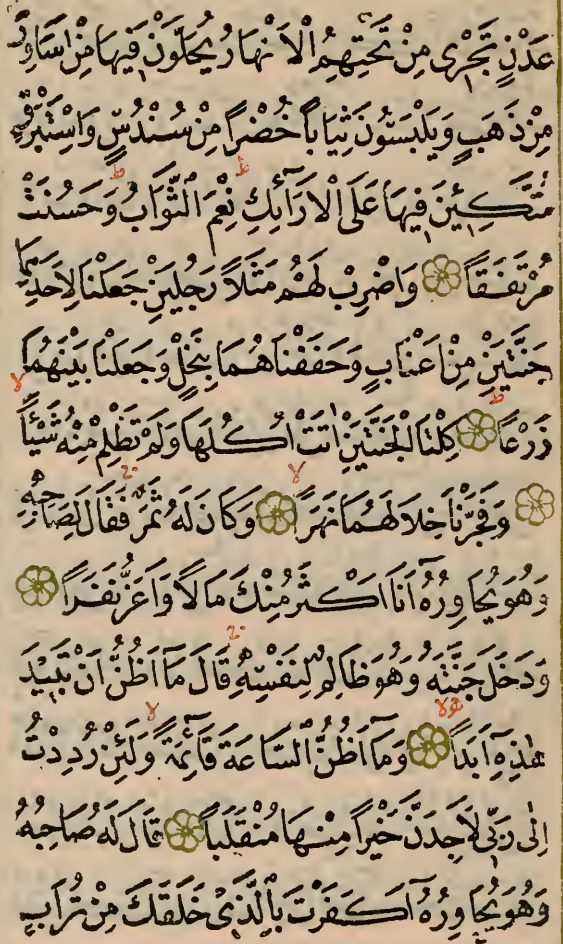 عَدْنٍ تَجْرِى مِنْ تَحْتِهِمُ الْاَنْهَارُ يُحَلَّوْنَ فِيهَا مِنْ اَسَاوِرَ
مِنْ ذَهَبٍ وَيَلْبَسُونَ ثِيَاباً خُضْراً مِنْ سُنْدُسٍ وَاِسْتَبْرَقٍ
مُتَّكِئِينَ فِيهَا عَلَى الْاَرَآئِكِ نِعْمَ الثَّوَابُ وَحَسُنَتْ
مُرْتَفَقاً وَاضْرِبْ لَهُمْ مَثَلاً رَجُلَيْنِ جَعَلْنَا لِاَحَدِهِمَا
جَنَّتَيْنِ مِنْ اَعْنَابٍ وَحَفَفْنَاهُمَا بِنَخْلٍ وَجَعَلْنَا بَيْنَهُمَا
زَرْعاً كِلْتَا الْجَنَّتَيْنِ اٰتَتْ اُكُلَهَا وَلَمْ تَظْلِمْ مِنْهُ شَيْئاً
وَفَجَّرْنَا خِلَالَهُمَا نَهَراً وَكَانَ لَهُ ثَمَرٌ فَقَالَ لِصَاحِبِهِ
وَهُوَ يُحَاوِرُهُٓ اَنَا اَكْثَرُ مِنْكَ مَالاً وَاَعَزُّ نَفَراً
وَدَخَلَ جَنَّتَهُ وَهُوَ ظَالِمٌ لِنَفْسِهِ قَالَ مَٓا اَظُنُّ اَنْ تَبِيدَ
هٰذِهِٓ اَبَداً وَمَٓا اَظُنُّ السَّاعَةَ قَآئِمَةً وَلَئِنْ رُدِدْتُ
اِلٰى رَبِّى لَاَجِدَنَّ خَيْراً مِنْهَا مُنْقَلَباً قَالَ لَهُ صَاحِبُهُ
وَهُوَ يُحَاوِرُهُٓ اَكَفَرْتَ بِالَّذِى خَلَقَكَ مِنْ تُرَابٍ